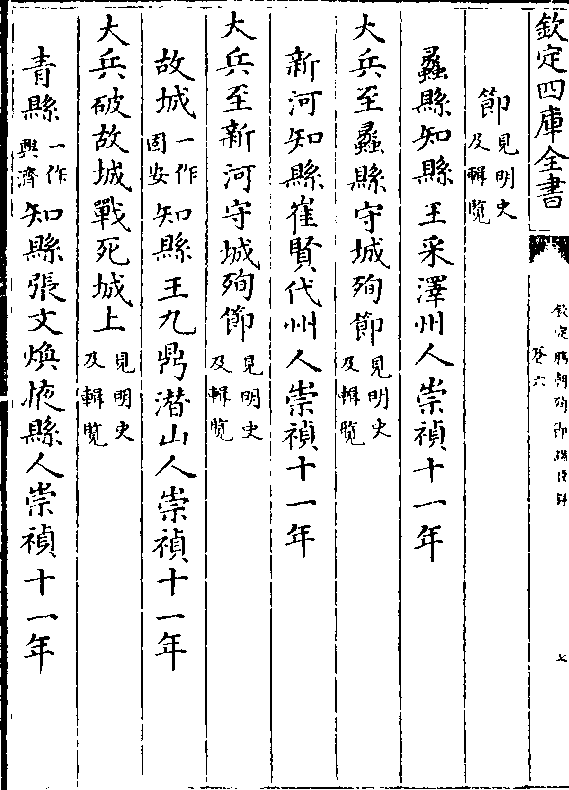 欽定四庫全書
欽定勝朝殉節諸臣錄
卷六
七
節見明史及輯覽
蠡縣知縣王采澤州人崇禎十一年
大兵至蠡縣守城殉節見明史及輯覽
新河知縣崔賢代州人崇禎十一年
大兵至新河守城殉節見明史及輯覽
故城一作固安知縣王九鼎潛山人崇禎十一年
大兵破故城戰死城上見明史及輯覽
青縣一作興濟知縣張文煥掖縣人崇禎十一年